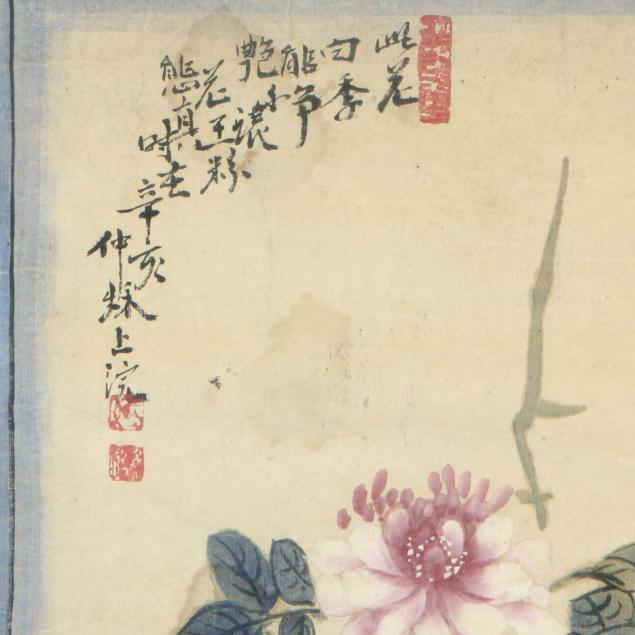 此花
四季
能争
艳不让
花王粉
态真
时在
辛亥
仲秋
上浣